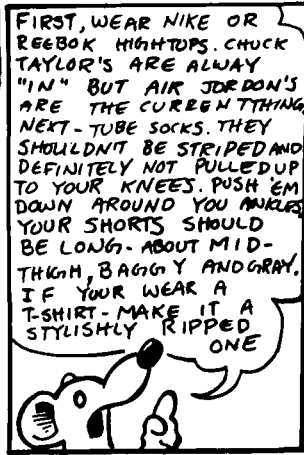 FIRST, WEAR NIKE OR
REEBOK HIGHTOPS. CHUCK
TAYLOR'S ARE ALWAY
"IN" BUT AIR JORDON'S
ARE THE CURRENTTHING,
NEXT-TUBE SOCKS. THEY
SHOULDN'T BE STRIPED AND
DEFINITELY NOT PULLED UP
TO YOUR KNEES. PUSH 'EM
DOWN AROUND YOU ANKLES
YOUR SHORTS SHOULD
BE LONG-ABOUT MID-
THIGH, BAGGY AND GRAY.
IF YOUR WEAR A
T-SHIRT-MAKE IT A
STYLISHLY RIPPED
ONE